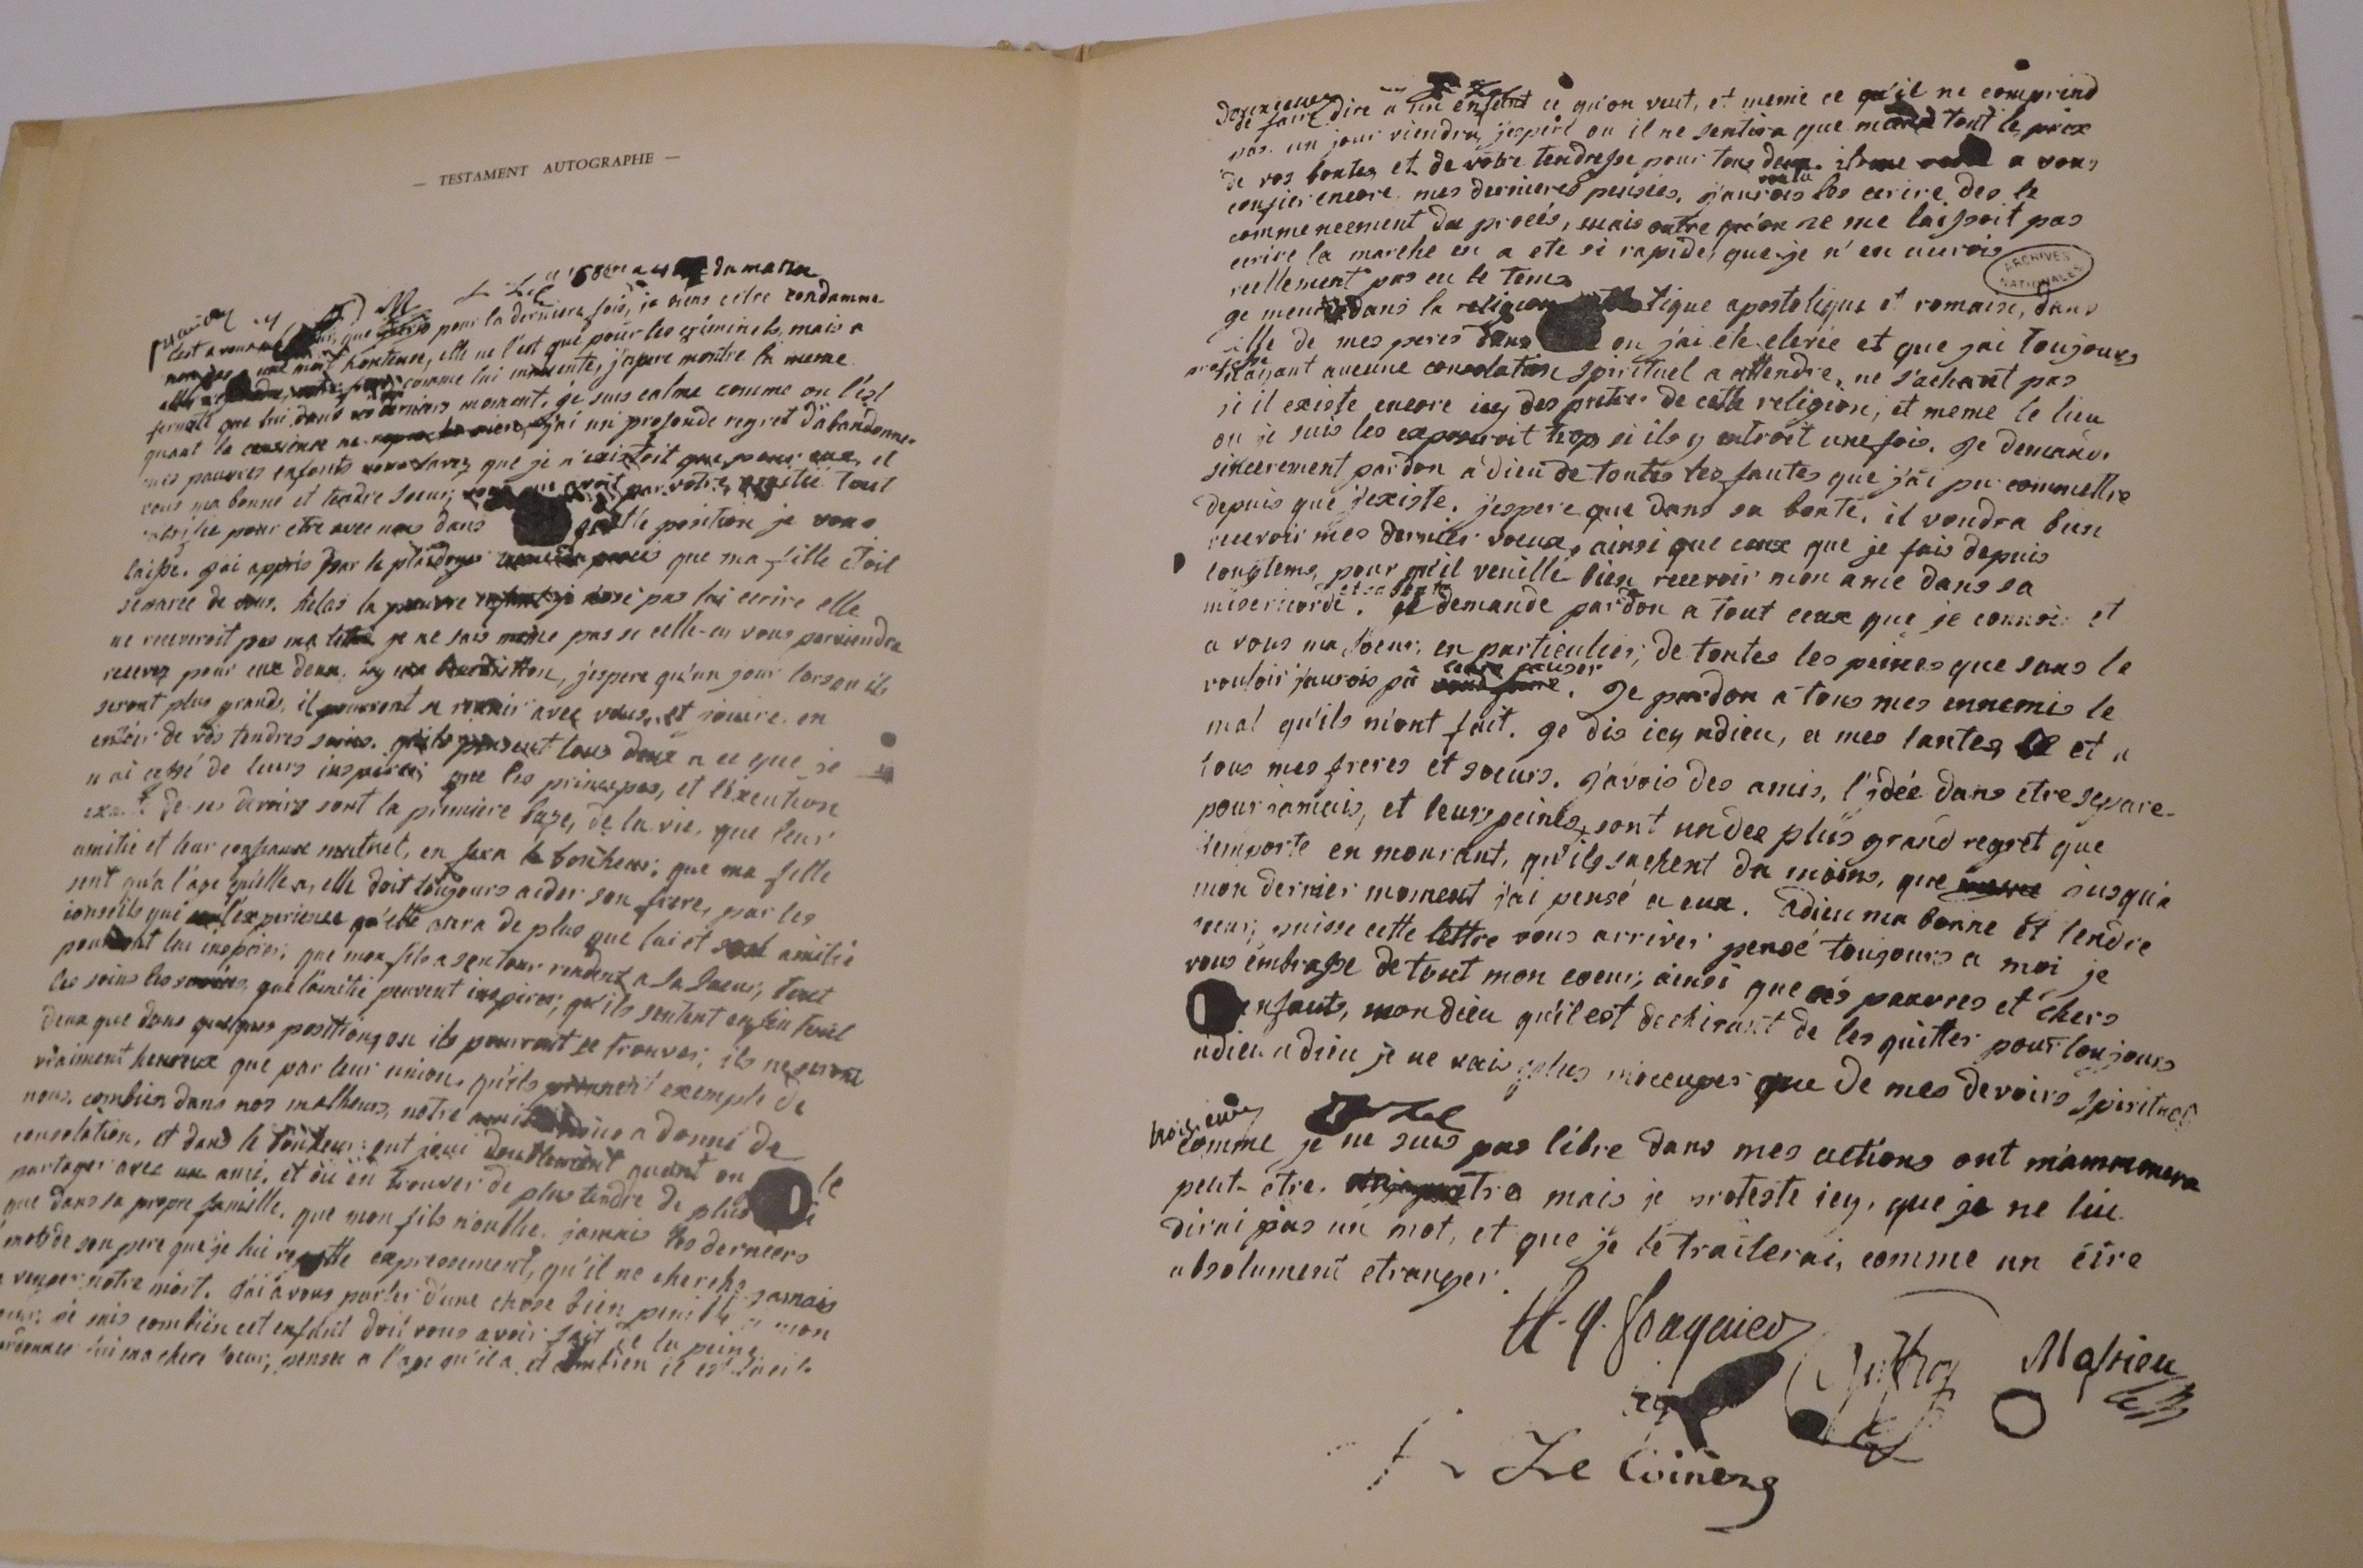 — TESTAMENT AUTOGRAPHE —
du matin
c'est a vous que pour la derniere fois, je viens d'etre condamne
non pas a une mort honteuse, elle ne l'est que pour les criminels, mais a
comme lui innocente, j'espere montre la meme
fermete que lui dans derniers moment. je suis calme comme on l'est
quant la consience ne j'ai un profonde regret d'abandonner
mes pauvres enfants vous savez que je n'existoit que pour eux, et
vous ma bonne et tendre soeur, vous qui avoit par votre amitie tout
sacrifie pour etre avec nous dans quelle position je vous
laisse. j'ai appris par le plaidoyer que ma fille etoit
separee de vous. helas la pauvre enfant je n'ose pas lui ecrire elle
ne receveroit pas ma lettre je ne sais même pas si celle-cy vous parviendra
recevez pour eux deux, icy ma benediction, j'espere qu'un jour lorsqu'ils
seront plus grands, il pourront se reunir avec vous, et jouire en
entier de vos tendres soins. qu'ils pensent tous deux a ce que je
n'ai cessé de leurs inspirer; que les principes, et l'execution
exacte de ses devoirs sont la premiere baze, de la vie, que leur
amitie et leur confiance mutuel, en fera le bonheur; que ma fille
sent qu'a l'age qu'elle a, elle doit toujours aider son frere, par les
conseils qui l'experience qu'elle aura de plus que lui et son amitié
pourront lui inspirer; que mon fils a son tour rendent a sa soeur, tout
les soins les que l'amitié peuvent inspirer; qu'ils sentent enfin tout
deux que dans quelques positions ou ils pourront se trouver; ils ne seront
vraiment heureux que par leur union. qu'ils prennent exemple de
nous, combien dans nos malheurs, notre amitie nous a donné de
consolation, et dans le bonheur ont joui doublement quant on le
partager avec un ami, et où en trouver de plus tendre de plus
que dans sa propre famille. que mon fils n'oublie jamais les derniers
mots de son pere que je lui repette expressement, qu'il ne cherche jamais
a venger notre mort. j'ai a vous parler d'une chose bien penible a mon
coeur; je sais combien cet enfant doit vous avoir fait de la peine
pardonnez lui ma chere soeur, pensez a l'age qu'il a et combien il est facile
de faire dire a un enfant ce qu'on veut, et meme ce qu'il ne comprend
pas. un jour viendra, j'espere ou il ne sentira que tout le prix
de vos bontes, et de votre tendresse pour tous deux. a vous
confier encore mes dernieres pensées, j'aurois voulu les ecrire des le
commencement du procés, mais outre qu'on ne me laissoit pas
ecrire la marche en a ete si rapide, que je n'en aurois
reellement pas eu le tems
ARCHIVES NATIONALES
je meurs dans la religion apostolique et romaine, dans
celle de mes peres dans ou j'ai ete elevée et que j'ai toujours
n'ayant aucune consolation spirituel a attendre, ne s'achant pas
si il existe encore icy des pretres de cette religion, et meme le lieu
ou je suis les exposeroit trop si ils y entroit une fois. je demande
sincerement pardon a dieu de toutes les fautes que j'ai pu commettre
depuis que j'existe. j'espere que dans sa bonté, il voudra bien
recevoir mes derniers voeux, ainsi que ceux que je fais depuis
longtems, pour qu'il veuille bien recevoir mon ame dans sa
misericorde et sa bonté. je demande pardon a tout ceux que je connois et
a vous ma soeur, en particulier, de toutes les peines que sans le
vouloir j'aurois pû leurs causer. je pardon a tous mes ennemis le
mal qu'ils m'ont fait. je dis icy adieu, a mes tantes et a
tous mes freres et soeurs. j'avois des amis, l'idée d'en etre separe
pour jamais, et leurs peines, sont un des plus grand regret que
j'emporte en mourant, qu'ils sachent du moins, que jusqu'a
mon dernier moment j'ai pensé a eux. adieu ma bonne et tendre
soeur; puisse cette lettre vous arriver pensé toujours a moi je
vous embrasse de tout mon coeur; ainsi que ces pauvres et chers
enfants, mon dieu qu'il est dechirant de les quitter pour toujours
adieu adieu je ne vais plus m'occuper que de mes devoirs spirituels
comme je ne suis pas libre dans mes actions ont m'ammenera
peut-être, pretre mais je proteste icy, que je ne lui
dirai pas un mot, et que je le traiterai, comme un être
absolument etranger.
Massieu